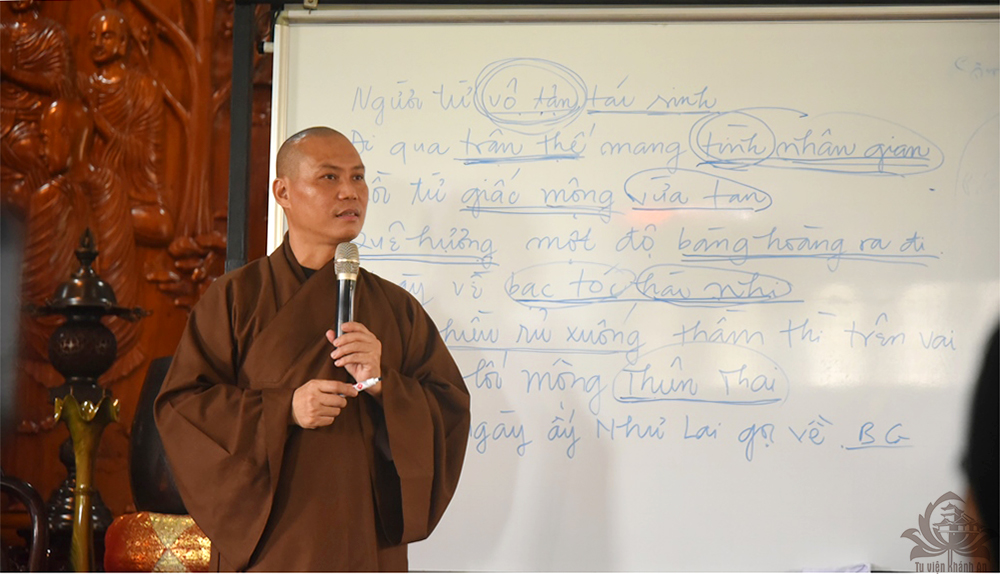 Người từ vô tận tái sinh
Đi qua trần thế mang tình nhân gian
từ giấc mộng vừa tan
Quê hương một độ bàng hoàng ra đi.
về bạc tóc hài nhi
rủ xuống thầm thì trên vai
lối mộng Thiên Thai
ngày ấy Như Lai gọi về. BG
Tu viện Khánh An